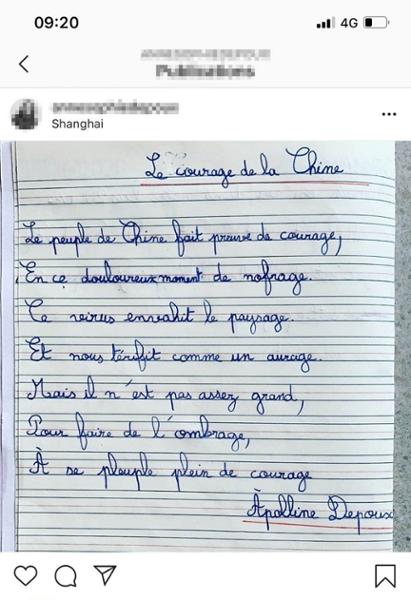 09:20
4G
Publications
Shanghai
Le courage de la Chine
Le peuple de Chine fait preuve de courage,
En ce douloureux moment de nofrage.
Ce virus envahit le paysage.
Et nous térifit comme un aurage.
Mais il n'est pas assez grand,
Pour faire de l'ombrage,
À se pleuple plein de courage
Àpolline Depoux